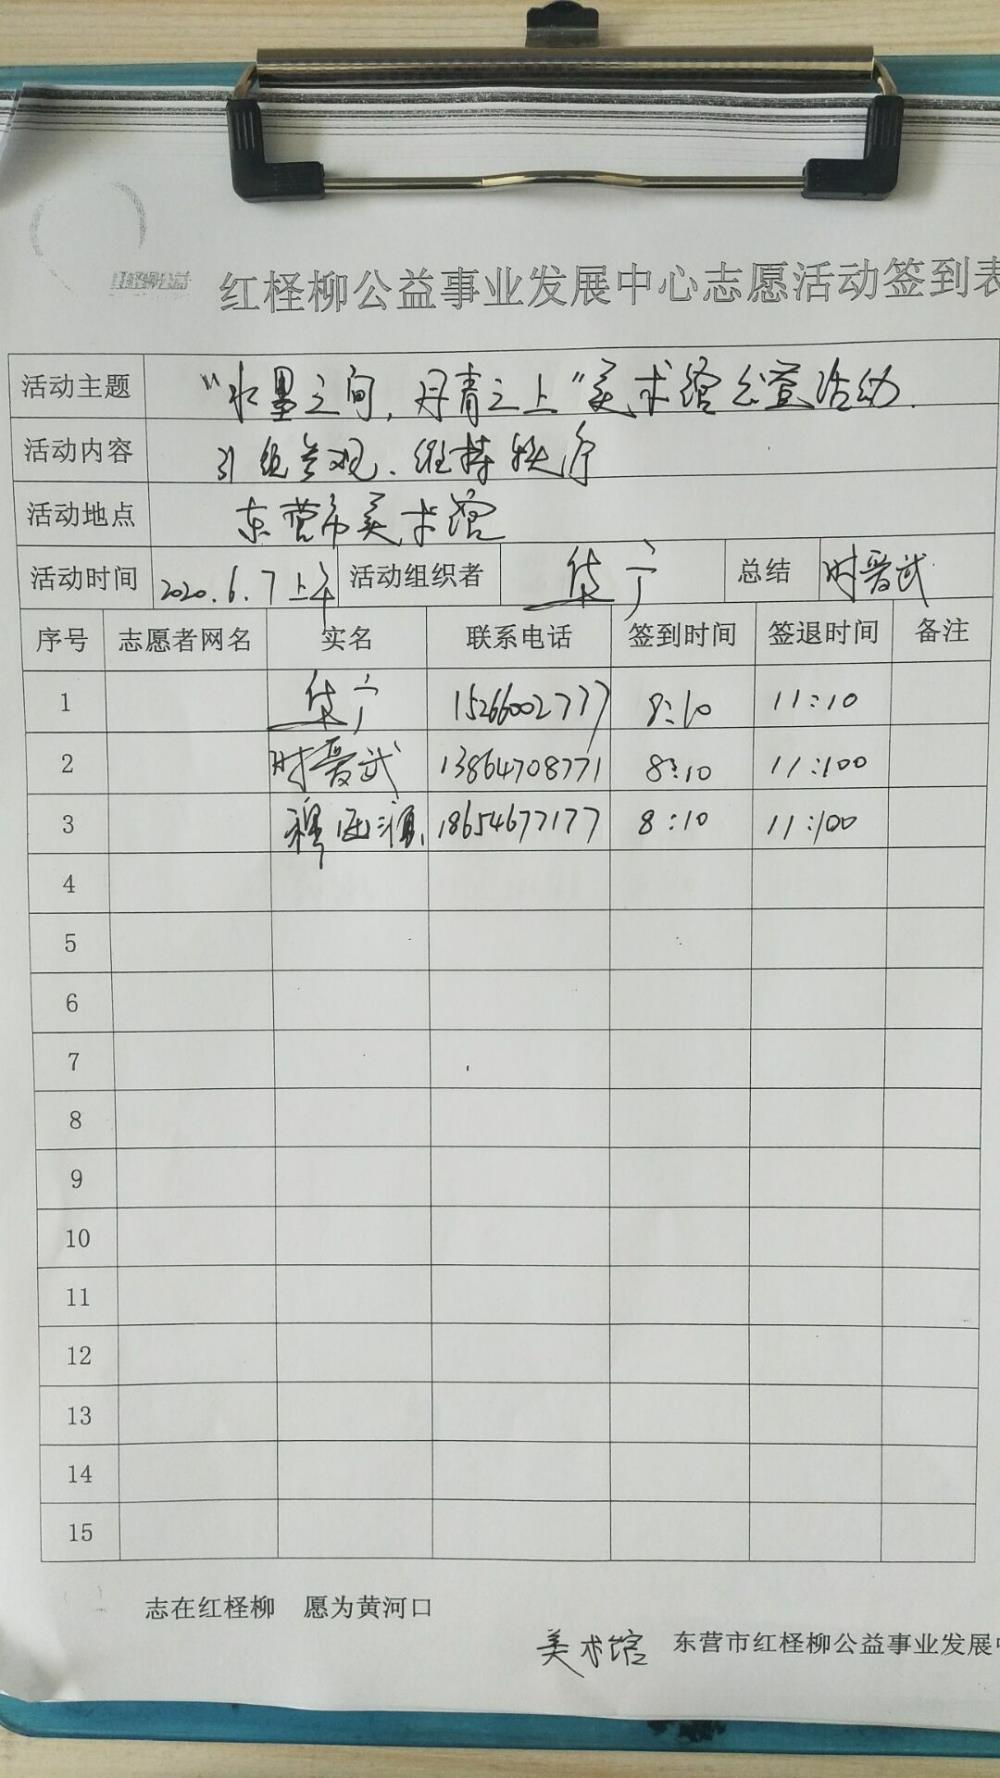 红柽柳公益
红柽柳公益事业发展中心志愿活动签到表
活动主题 “水墨之间，丹青之上”美术馆公益活动.
活动内容 引组参观、维持秩序
活动地点 东营市美术馆
活动时间 2020.6.7上午 活动组织者 华宁 总结 时晋武
序号 志愿者网名 实名 联系电话 签到时间 签退时间 备注
1 华宁 15266002777 8:10 11:10
2 时晋武 13864708771 8:10 11:00
3 18654677177 8:10 11:00
4
5
6
7
8
9
10
11
12
13
14
15
志在红柽柳 愿为黄河口
美术馆 东营市红柽柳公益事业发展中